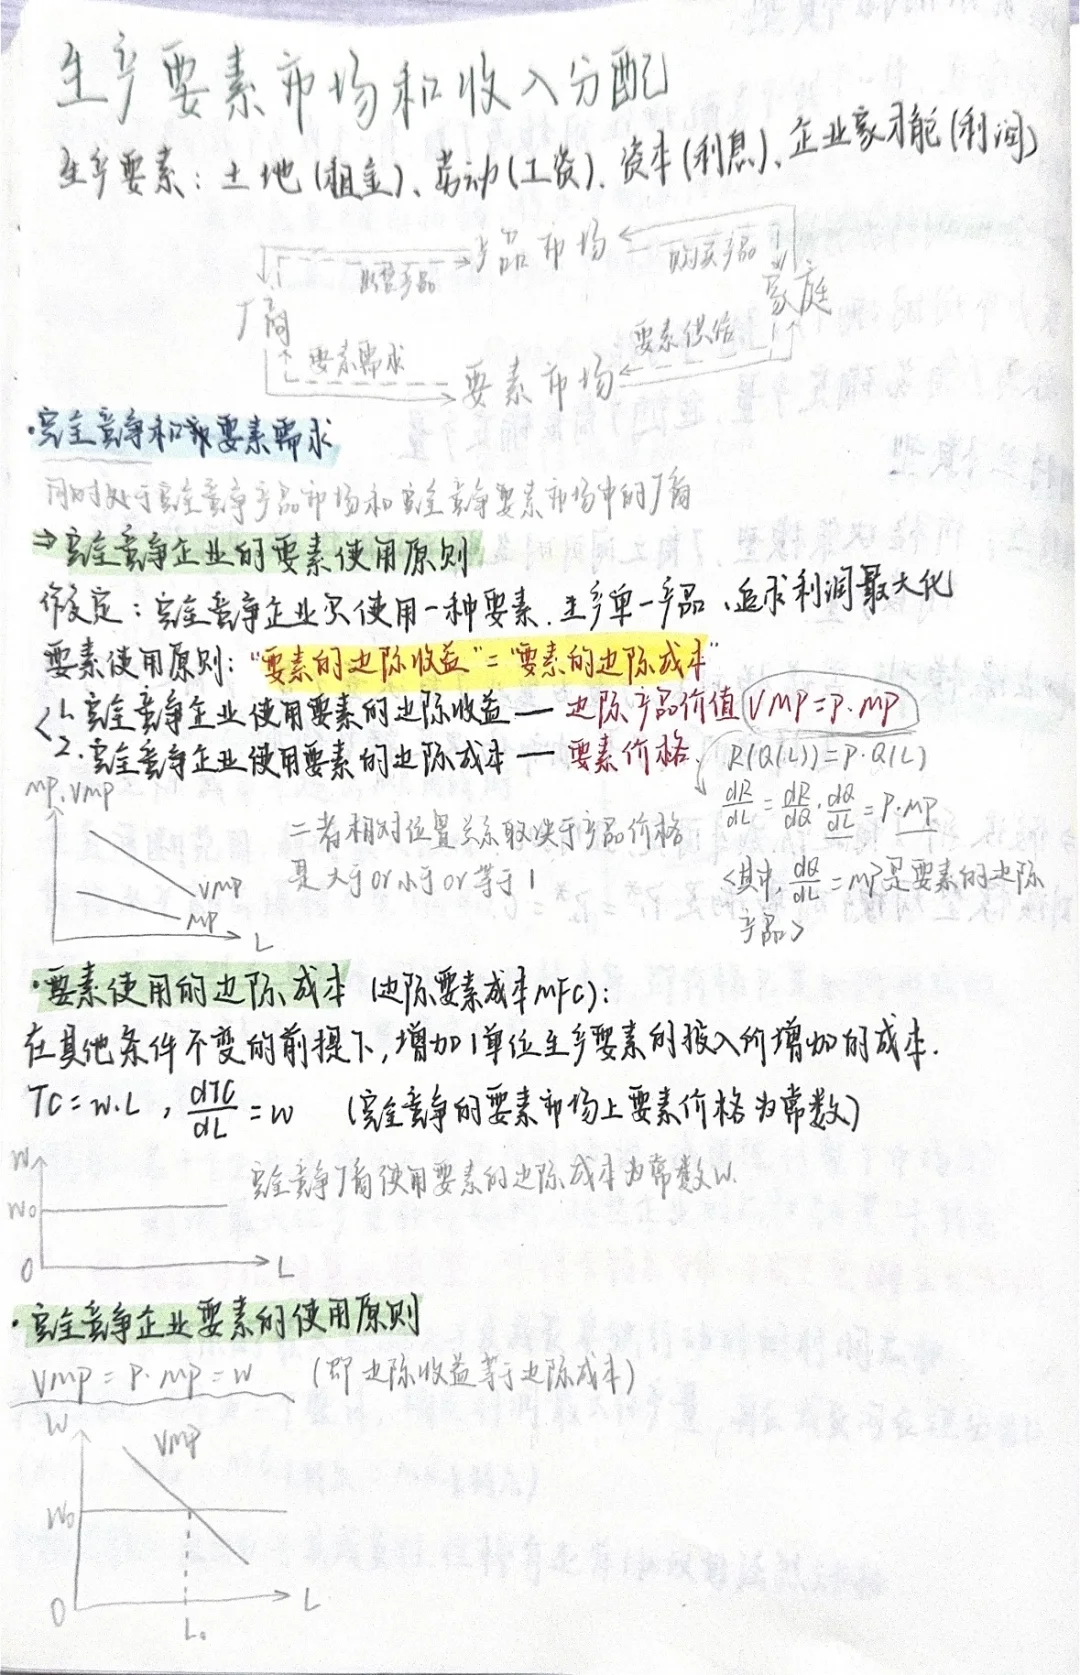 生产要素市场和收入分配
生产要素：土地(租金)、劳动(工资)、资本(利息)、企业家才能(利润)
产品市场
出售产品
购买产品
厂商
家庭
要素需求
要素供给
要素市场
·完全竞争和要素需求
同时处于完全竞争产品市场和完全竞争要素市场中的厂商
⇒完全竞争企业的要素使用原则
假定：完全竞争企业只使用一种要素、生产单一产品、追求利润最大化
要素使用原则："要素的边际收益"="要素的边际成本"
1.完全竞争企业使用要素的边际收益—边际产品价值 VMP=P·MP
2.完全竞争企业使用要素的边际成本—要素价格
R(Q(L))=P·Q(L)
dR/dL = dR/dQ · dQ/dL = P·MP
<其中, dQ/dL = MP是要素的边际
产品>
MP、VMP
VMP
MP
L
二者相对位置关系取决于产品价格
是大于or小于or等于1
·要素使用的边际成本 (边际要素成本MFC)：
在其他条件不变的前提下,增加1单位生产要素的投入所增加的成本.
TC=w·L , dTC/dL =w (完全竞争的要素市场上要素价格为常数)
W
W₀
0
L
完全竞争厂商使用要素的边际成本为常数W.
·完全竞争企业要素的使用原则
VMP=P·MP=W (即边际收益等于边际成本)
W
VMP
W₀
0
L
L₀